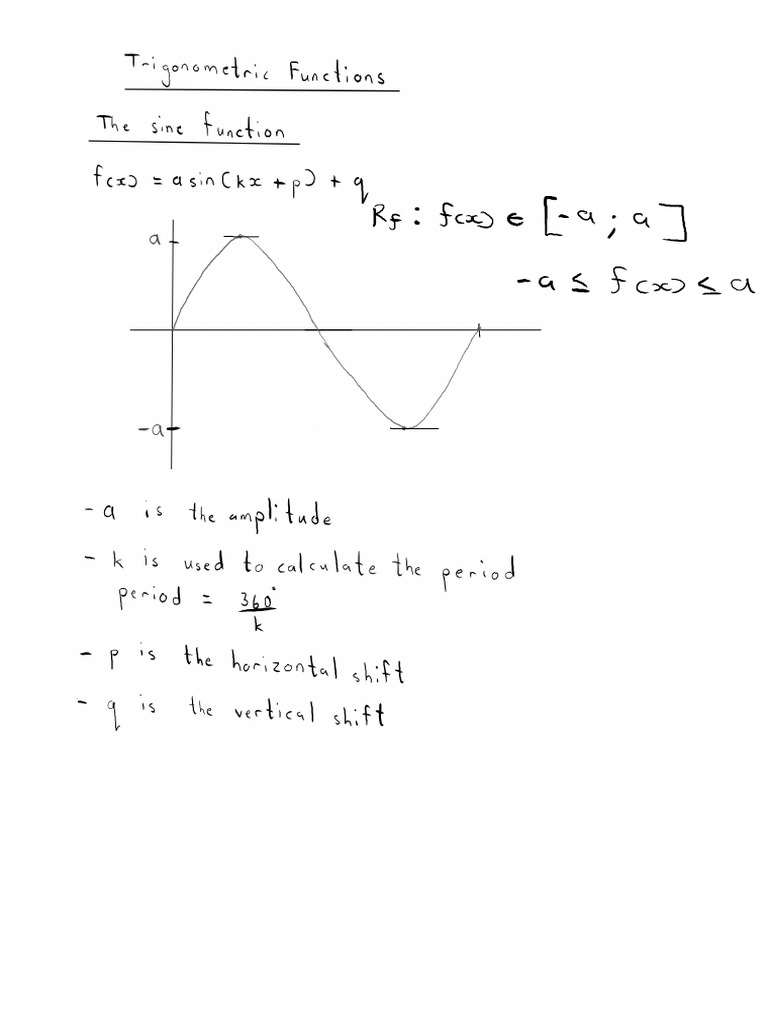 Trigonometric Functions
The sine function
f(x) = a sin(kx + p) + q
Rf : f(x) ∈ [-a ; a]
-a ≤ f(x) ≤ a
a
-a
- a is the amplitude
- k is used to calculate the period
period = 360°/k
- p is the horizontal shift
- q is the vertical shift